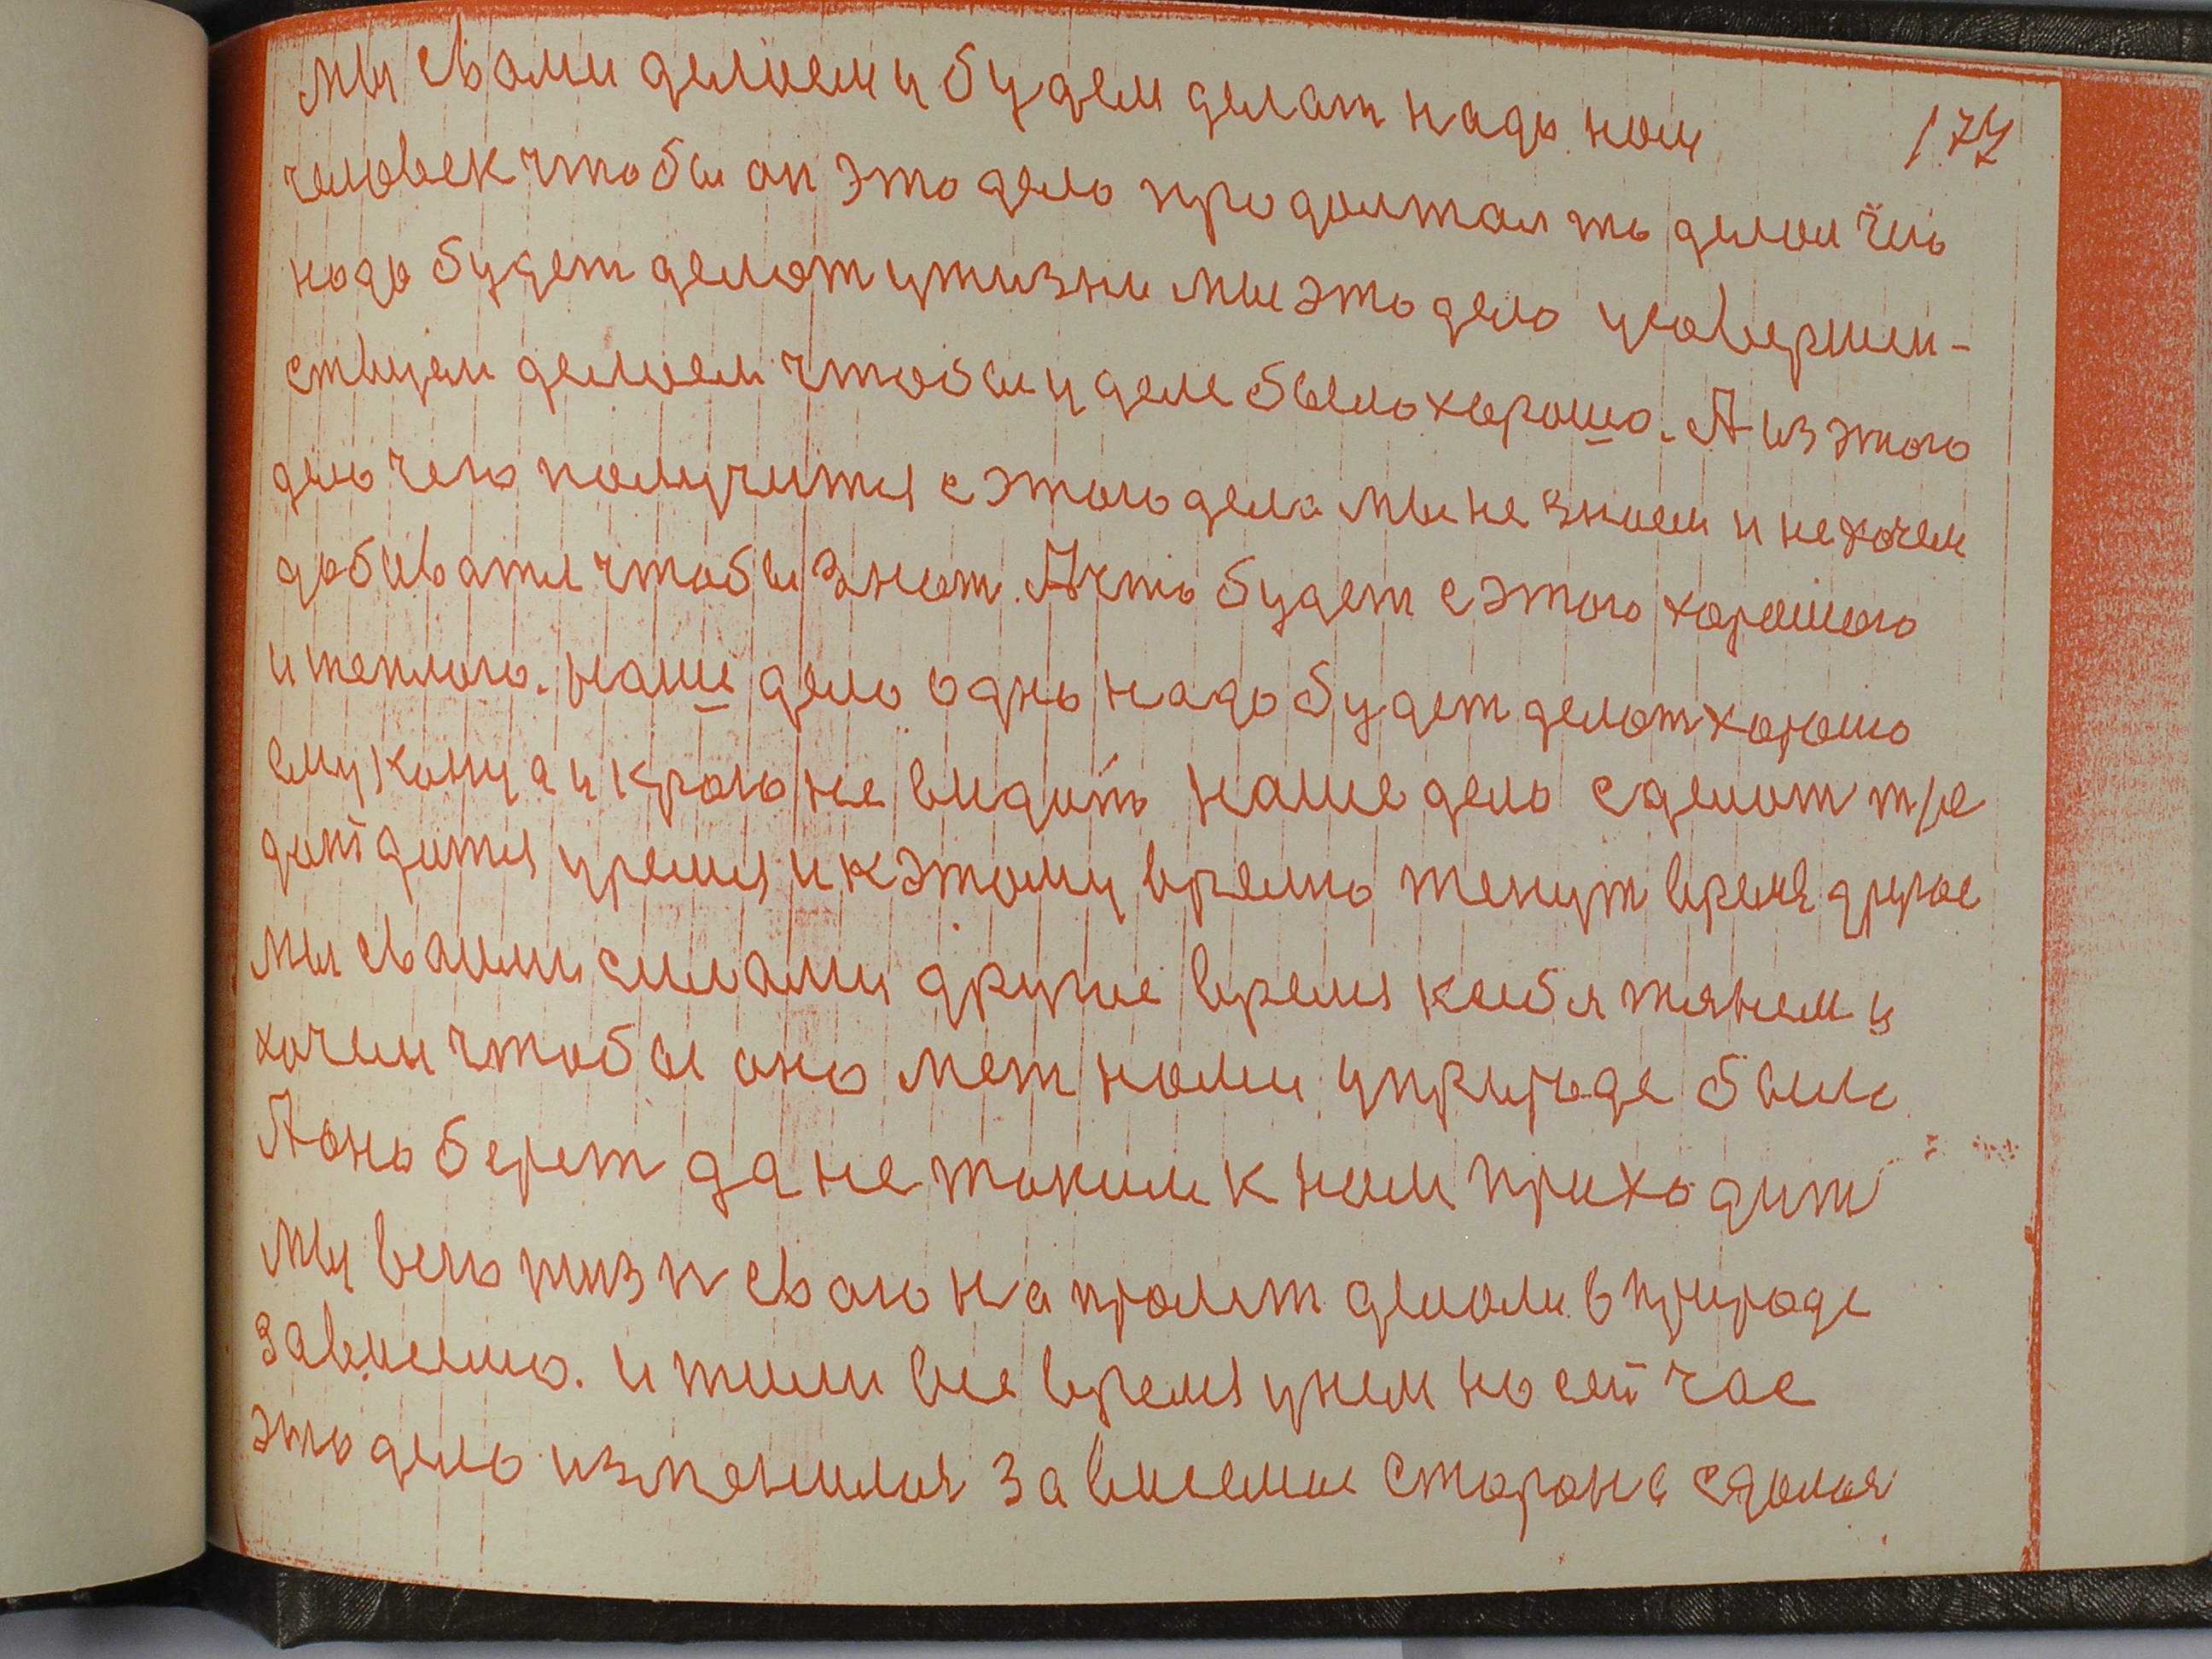 мы свами делаем и будем делат надо нам 174
человек чтобы он это дело продолжал то делаи чего
надо будет делат ужизни мы это дело усовершен-
ствуем делаем чтобы у деле было хорошо. А из этого
дело чего получится с этого дела мы не знаем и не хочем
добиватя чтобы знат. А что будет с этого хорошого
и теплого. наше дело одно надо будет делат хорошо
ему кому а и крого не видать наше дело сделат
дойдится уремя и к этому время тенут время другое
мы сваими силами другие время ксебя тянем и
хочем чтобы оно мет нами уприроде было
А оно берет да не таким к нам приходит
мы всю жизн сваю напролет делали в природе
зависемо. и жили все время унем но сейчас
это дело изменилося зависемые сторона сдалася